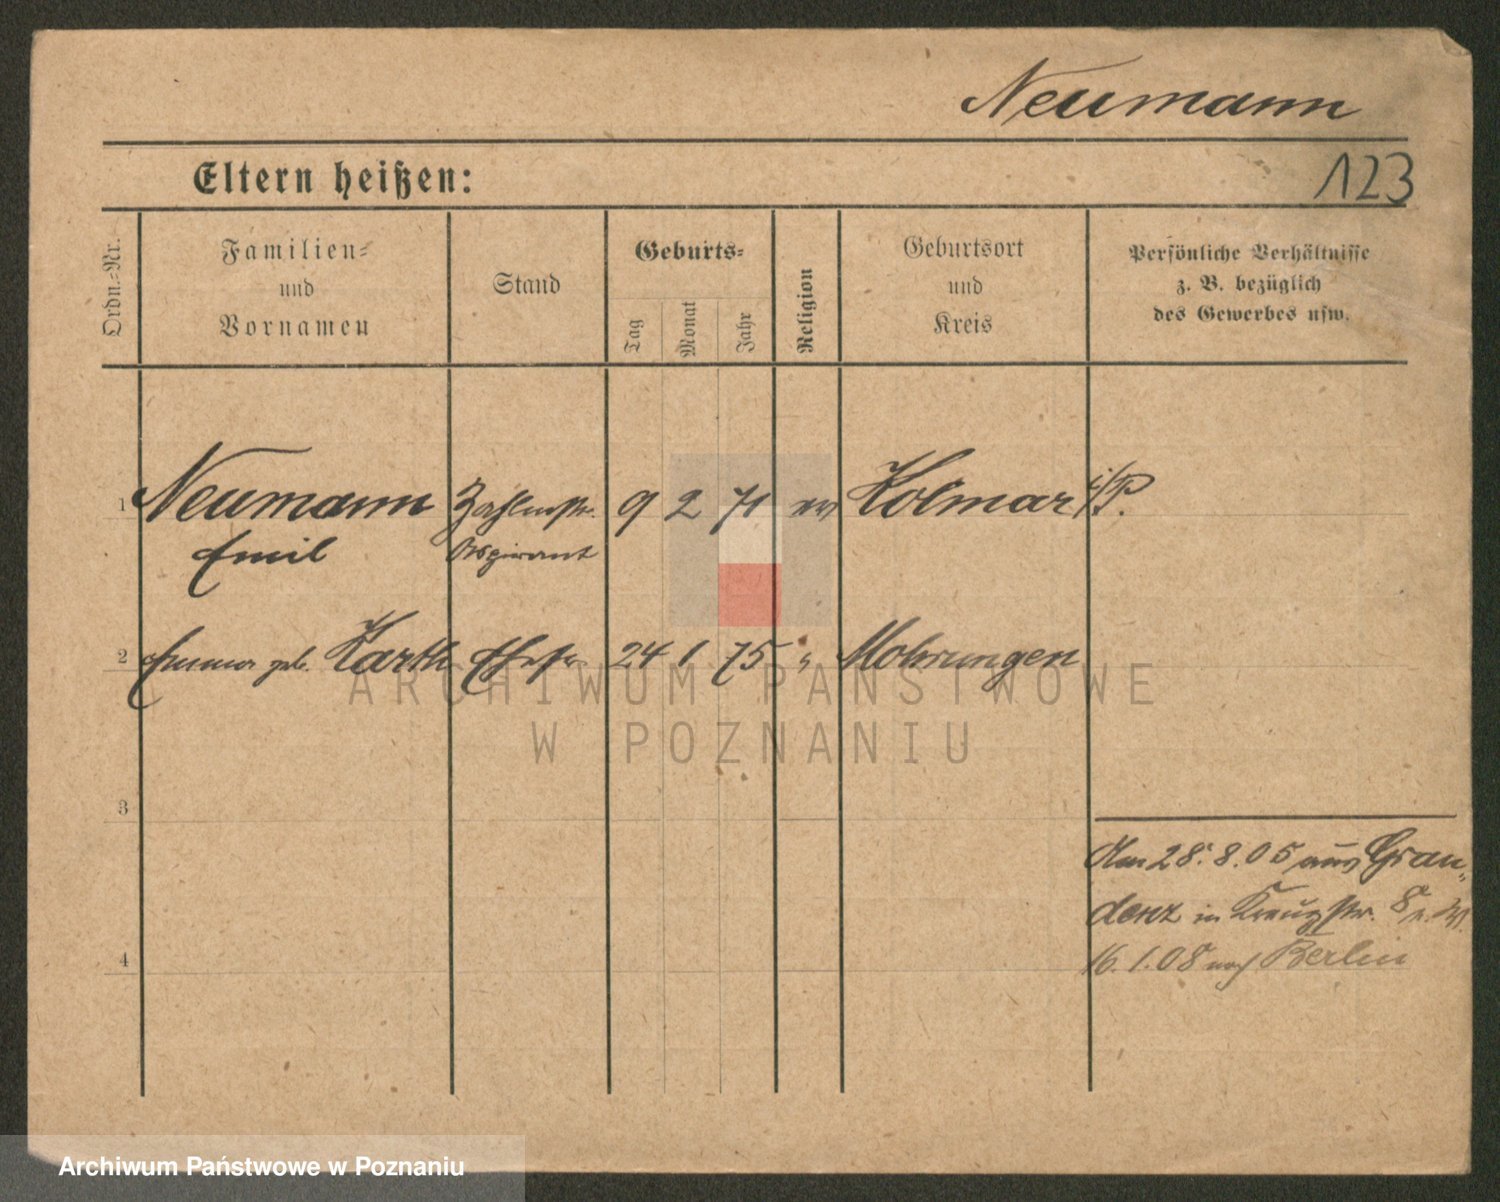 Neumann
123
Eltern heißen:
Ordn.-Nr.
Familien-
und
Vornamen
Stand
Geburts-
Tag
Monat
Jahr
Religion
Geburtsort
und
Kreis
Persönliche Verhältnisse
z. B. bezüglich
des Gewerbes usw.
1 Neumann Zahlmstr. 9 2 71 ev Kolmar i/P.
Emil Aspirant
2 Emma geb. Karth Ehefr 24 1 75 " Mohrungen
3
4
Am 28.8.05 aus Grau-
denz in Kreuzstr. 8
16.1.08 nach Berlin
ARCHIWUM PAŃSTWOWE
W POZNANIU
Archiwum Państwowe w Poznaniu